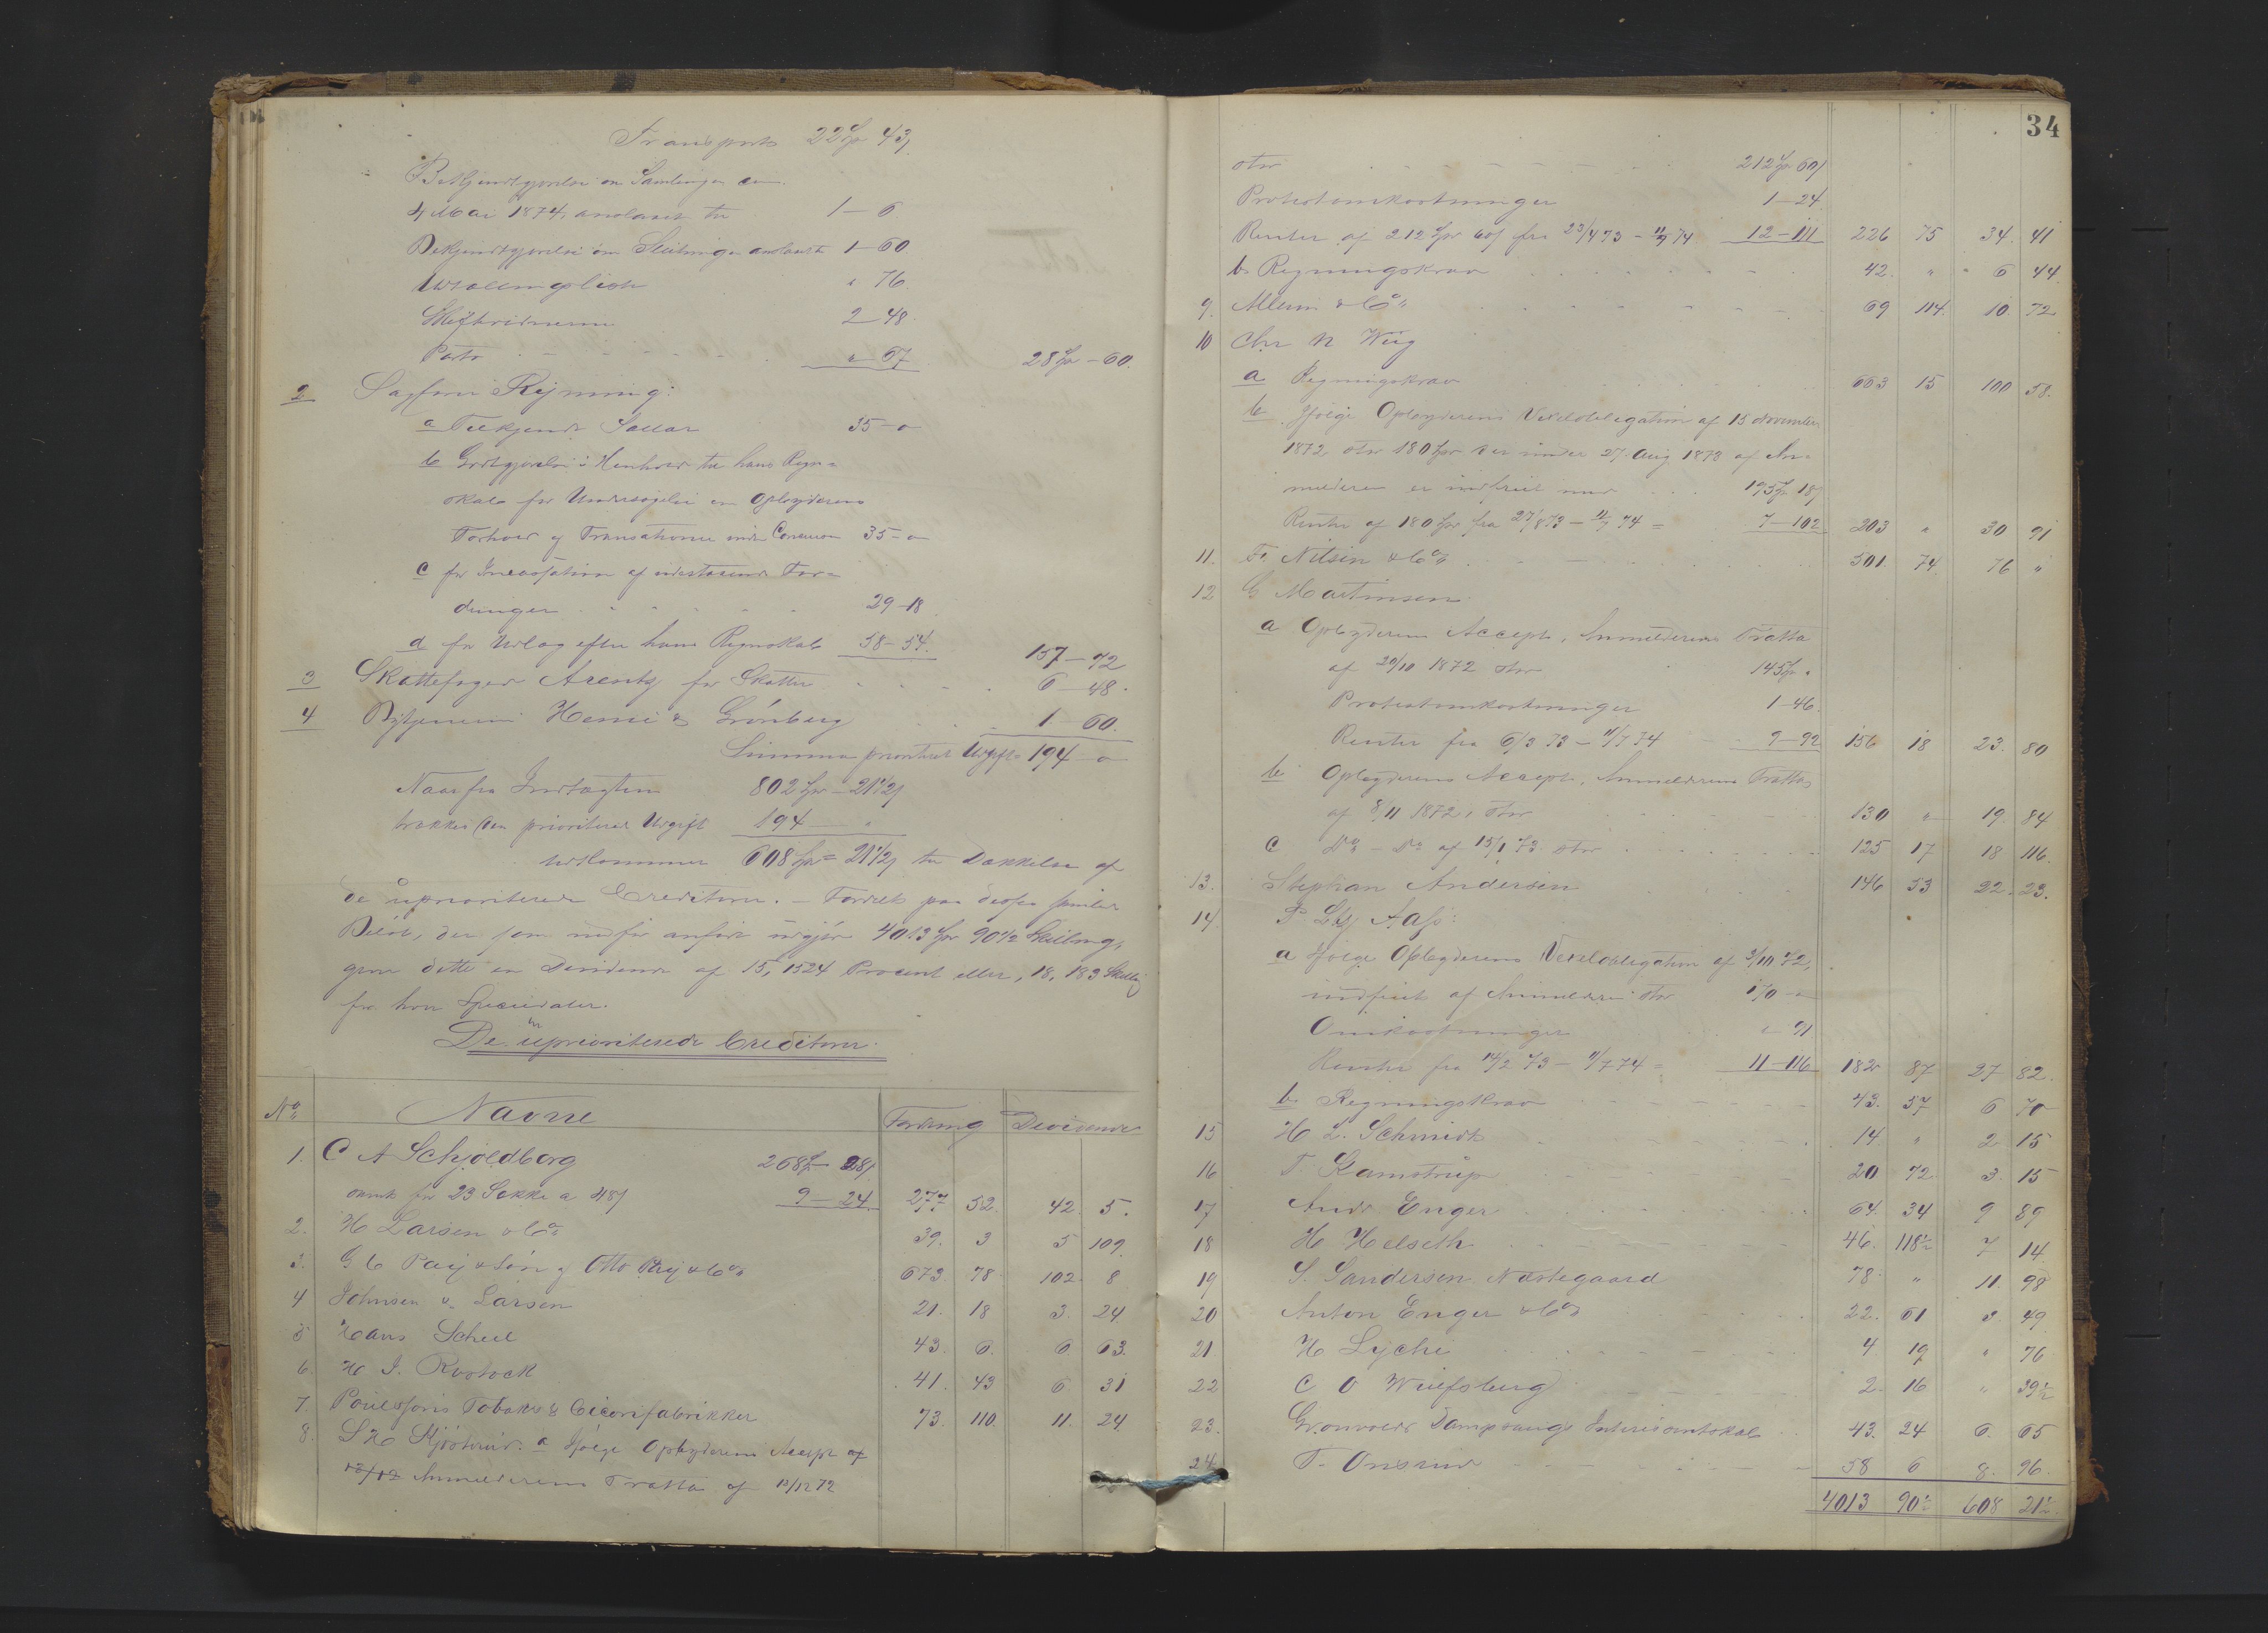 Transport 22 Spd 43 ß
Bekjendtgjørelse om Samlingen den
4 Mai 1874, anslaaet til 1 - 6
Bekjendtgjørelse om Slutningen anslaaet 1 - 60
Utallingslister " 76
Skiftevidnerne 2 - 48
Porto " - 67 28 Spd - 60
2 Sagfører Rejning:
a Tilkjendt Sallar 35 - "
b Godtgjørelse i Henhold til hans Regn=
skab for Undersøgelse om Opbyderens
Forhold og Transationer under Concursen 35 - "
c for Incassation af udestaaende For=
dringer 29 - 18
d for Udlæg efter hans Regnskab 58 - 54 157 - 72
3 Skattefoged Arentz for Skatter 6 - 48
4 Henni & Grønberg 1 - 60
Summa prioriteret Udgift 194 - "
Naar fra Indtægten 802 Spd - 21 1/2 ß
trækkes den prioriterede Udgift 194 "
udkommer 608 Spd = 21 1/2 ß til Dækkelse af
de uprioriterede Creditorer. - Fordelt paa disses samlede
Beløb, der som nedfor anført udgjør 4013 Spd 90 1/2 Skilling,
giver dette en Dividende af 15,1524 Procent eller, 18,183 Skilling
for hver Speciedaler.
De uprioriterede Creditorer.
No Navne Fordring Dividende
1. C A Schjoldborg 268 Spd - 28 ß
samt for 23 Sække a 48 ß 9 - 24 277 52 42 5
2. H Larsen & Co 39 3 5 109
3. G C Paij & Søn og Otto Paij & Co 673 78 102 8
4 Johnsen & Larsen 21 18 3 24
5 Hans Scheel 43 6 6 63
6 H J. Rostock 41 43 6 31
7. Poulssons Tobaks & Cicorifabrikker 73 110 11 24
8. S H Kjøsterud. a Ifølge Opbyderens Accept af
13/12 Anmelderens Tratta af 12/12 72
34
stor 212 Spd 60 ß
Protestomkostninger 1 - 24
Renter af 212 Spd 60 ß fra 23/4 73 - 11/7 74 12 - 111 226 75 34 41
b. Regningskrav 42 " 6 44
9. Allum & Co 69 114 10 72
10 Chr N Wiig
a Regningskrav 663 15 100 58
b. Ifølge Opbyderens Vexelobligation af 15 November
1872 stor 180 Spd der under 27 Aug 1873 af An=
melderen er indfriet med 195 Spd 18 ß
Renter af 180 Spd fra 27/8 73 - 11/7 74 = 7 - 102 203 " 30 91
11. Fr. Nilsen & Co 501 74 76 "
12 G Martinsen
a Opbyderens Accept, Anmelderens Tratta
af 29/10 1872 stor 145 Spd "
Protestomkostninger 1 - 46
Renter fra 6/3 73 - 11/7 74 9 - 92 156 18 23 80
b Opbyderens Accept, Anmelderens Tratta
af 8/11 1872, stor 130 " 19 84
c Do - Do af 15/1 73 stor 125 17 18 116
13. Stephan Andersen 146 53 22 23
14 P. Aass:
a Ifølge Opbyderens Vexelobligation af 3/10 72,
indfriet af Anmelderen stor 170 - "
Omkostninger " - 91
Renter fra 14/2 73 - 11/7 74 = 11 - 116 182 87 27 82
b. Regningskrav 43 57 6 70
15 H L. Schmidt 14 " 2 15
16 T. Kamstrup 20 72 3 15
17 Andr Enger 64 34 9 89
18 H Helseth 46 118 1/2 7 14
19 S. Sandersen Næstegaard 78 " 11 98
20 Anton Enger & Co 22 61 3 49
21 H Lyche 4 19 " 76
22 C O Wulfsberg 2 16 " 39 1/2
23. Grønvolds Dampsaugs Interesentskab 43 24 6 65
24 T. Onsrud 58 6 8 96
4013 90 1/2 608 21 1/2